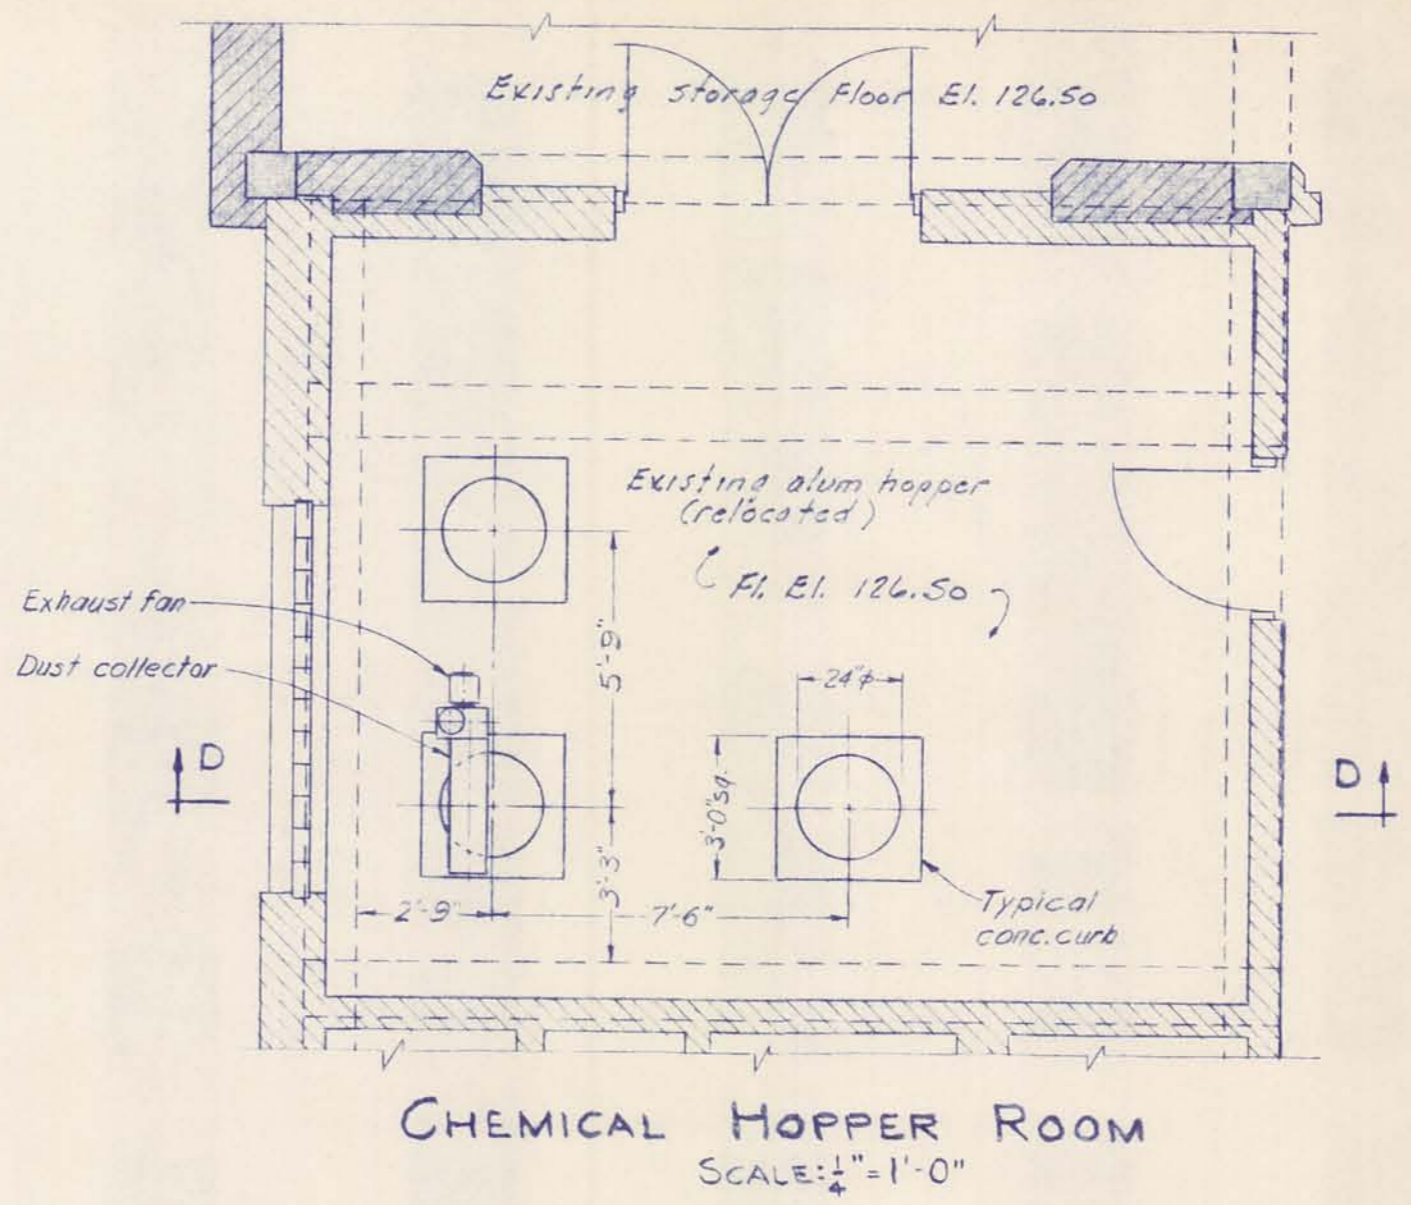 Existing storage Floor El. 126.50
Existing alum hopper
(relocated)
Fl. El. 126.50
Exhaust fan
Dust collector
5'-9"
24"φ
D
D
3'-0"sq.
3'-3"
2'-9"
7'-6"
Typical
conc. curb
CHEMICAL HOPPER ROOM
SCALE: 1/4" = 1'-0"